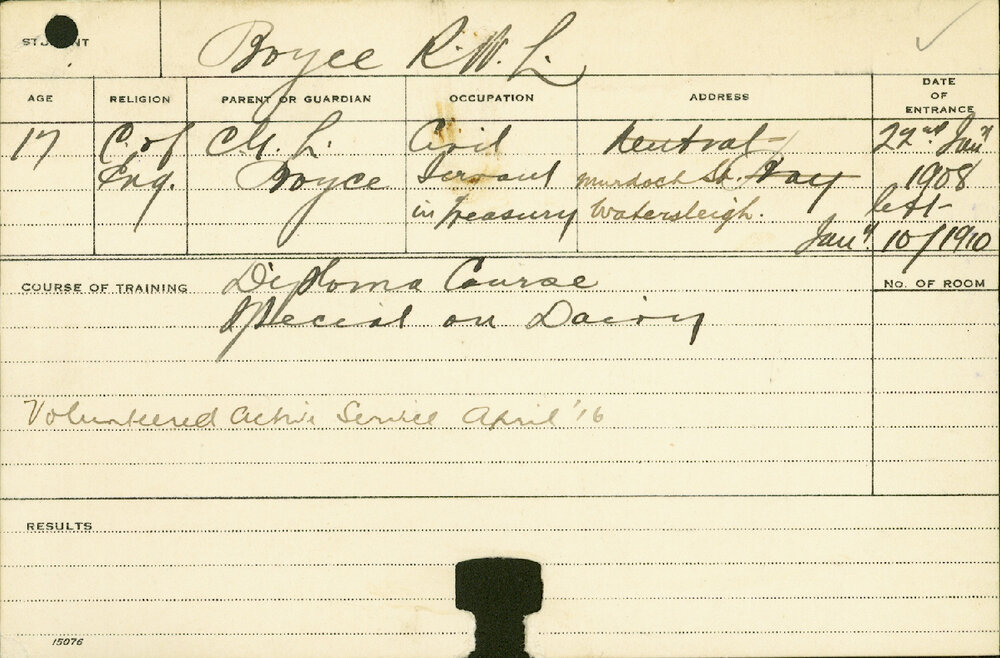 STUDENT Boyce R. W. L.
AGE RELIGION PARENT OR GUARDIAN OCCUPATION ADDRESS DATE OF ENTRANCE
17 C. of C. M. L. Civil Neutral 22nd Jany
Eng. Boyce Servant Murdoch St. Bay 1908
in Treasury Watersleigh. left
Jany 10/1910
COURSE OF TRAINING Diploma Course No. OF ROOM
Special on Dairy
Volunteered Active Service April '16
RESULTS
15076